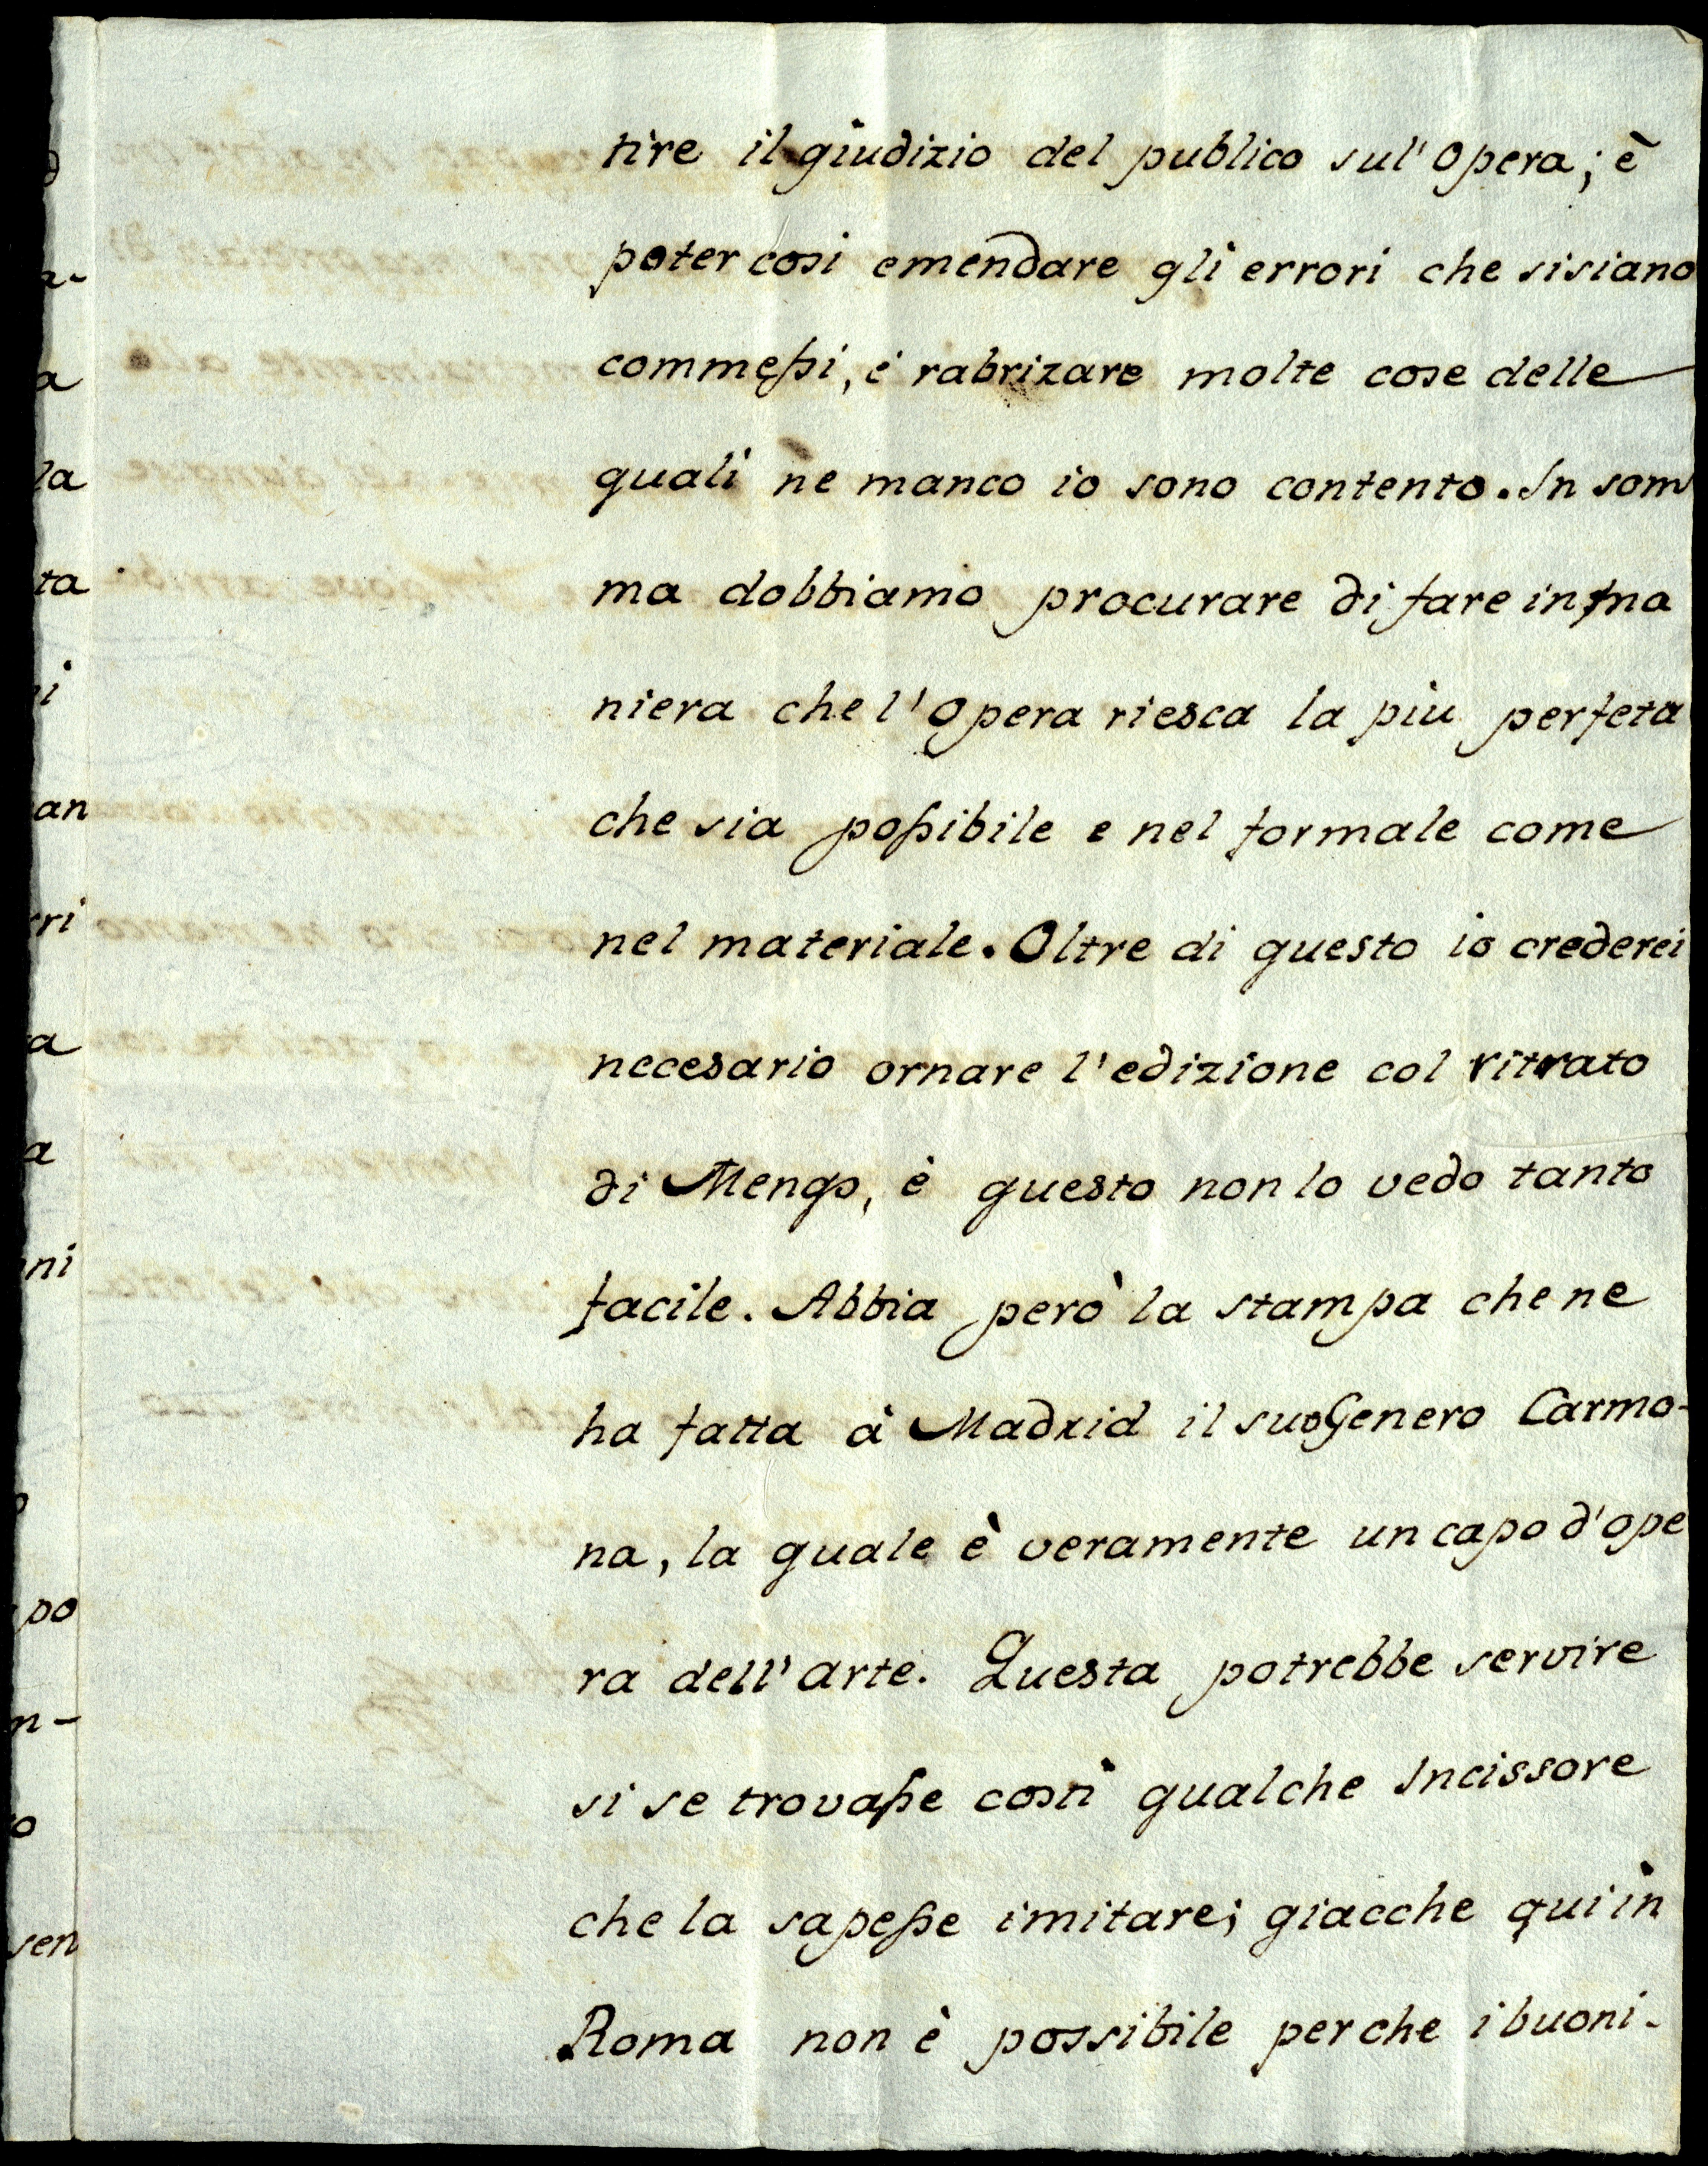 tire il giudizio del publico sul' Opera; è
poter cosi emendare gli errori che si siano
commessi, é rabrizare molte cose delle
quali ne manco io sono contento. In som
ma dobbiamo procurare di fare in ma
niera che l'Opera riesca la piu perfeta
che sia possibile e nel formale come
nel materiale. Oltre di questo io crederei
necesario ornare l'edizione col ritrato
di Mengs, è questo non lo vedo tanto
facile. Abbia però la stampa che ne
ha fatta à Madrid il suo Genero Carmo-
na, la quale è veramente un capo d'ope
ra dell'arte. Questa potrebbe servire
si se trovasse costì qualche Incissore
che la sapesse imitare; giacche qui in
Roma non è possibile perche i buoni-